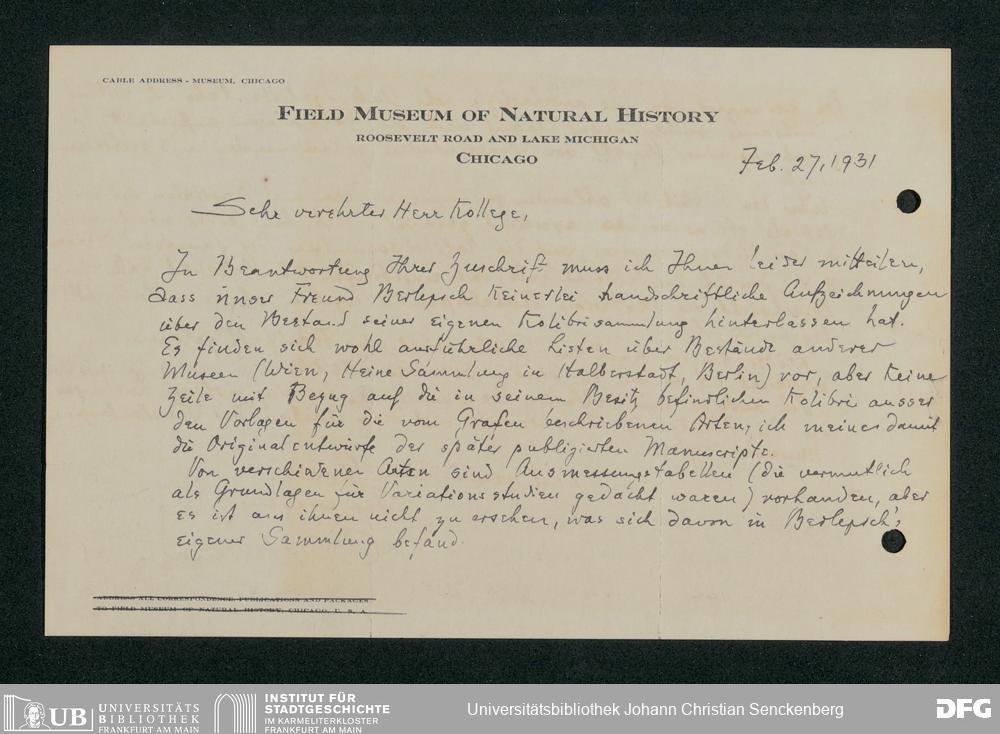 CABLE ADDRESS - MUSEUM, CHICAGO
FIELD MUSEUM OF NATURAL HISTORY
ROOSEVELT ROAD AND LAKE MICHIGAN
CHICAGO
Feb. 27, 1931
Sehr verehrter Herr Kollege,
In Beantwortung Ihrer Zuschrift muss ich Ihnen leider mitteilen,
dass unser Freund Berlepsch keinerlei handschriftliche Aufzeichnungen
über den Bestand seiner eigenen Kolibrisammlung hinterlassen hat.
Es finden sich wohl ausführliche Listen über Bestände anderer
Museen (Wien, Heine Sammlung in Halberstadt, Berlin) vor, aber keine
Zeile mit Bezug auf die in seinem Besitz befindlichen Kolibri ausser
den Vorlagen für die vom Grafen beschriebenen Arten, ich meine damit
die Originalentwürfe der später publizierten Manuscripte.
Von verschiedenen Arten sind Ausmessungstabellen (die vermutlich
als Grundlagen für Variationsstudien gedacht waren) vorhanden, aber
es ist aus ihnen nicht zu ersehen, was sich davon in Berlepsch's
eigener Sammlung befand.
ADDRESS ALL CORRESPONDENCE, PUBLICATIONS AND PACKAGES
TO FIELD MUSEUM OF NATURAL HISTORY, CHICAGO, U. S. A.
UB UNIVERSITÄTS
BIBLIOTHEK
FRANKFURT AM MAIN
INSTITUT FÜR
STADTGESCHICHTE
IM KARMELITERKLOSTER
FRANKFURT AM MAIN
Universitätsbibliothek Johann Christian Senckenberg
DFG